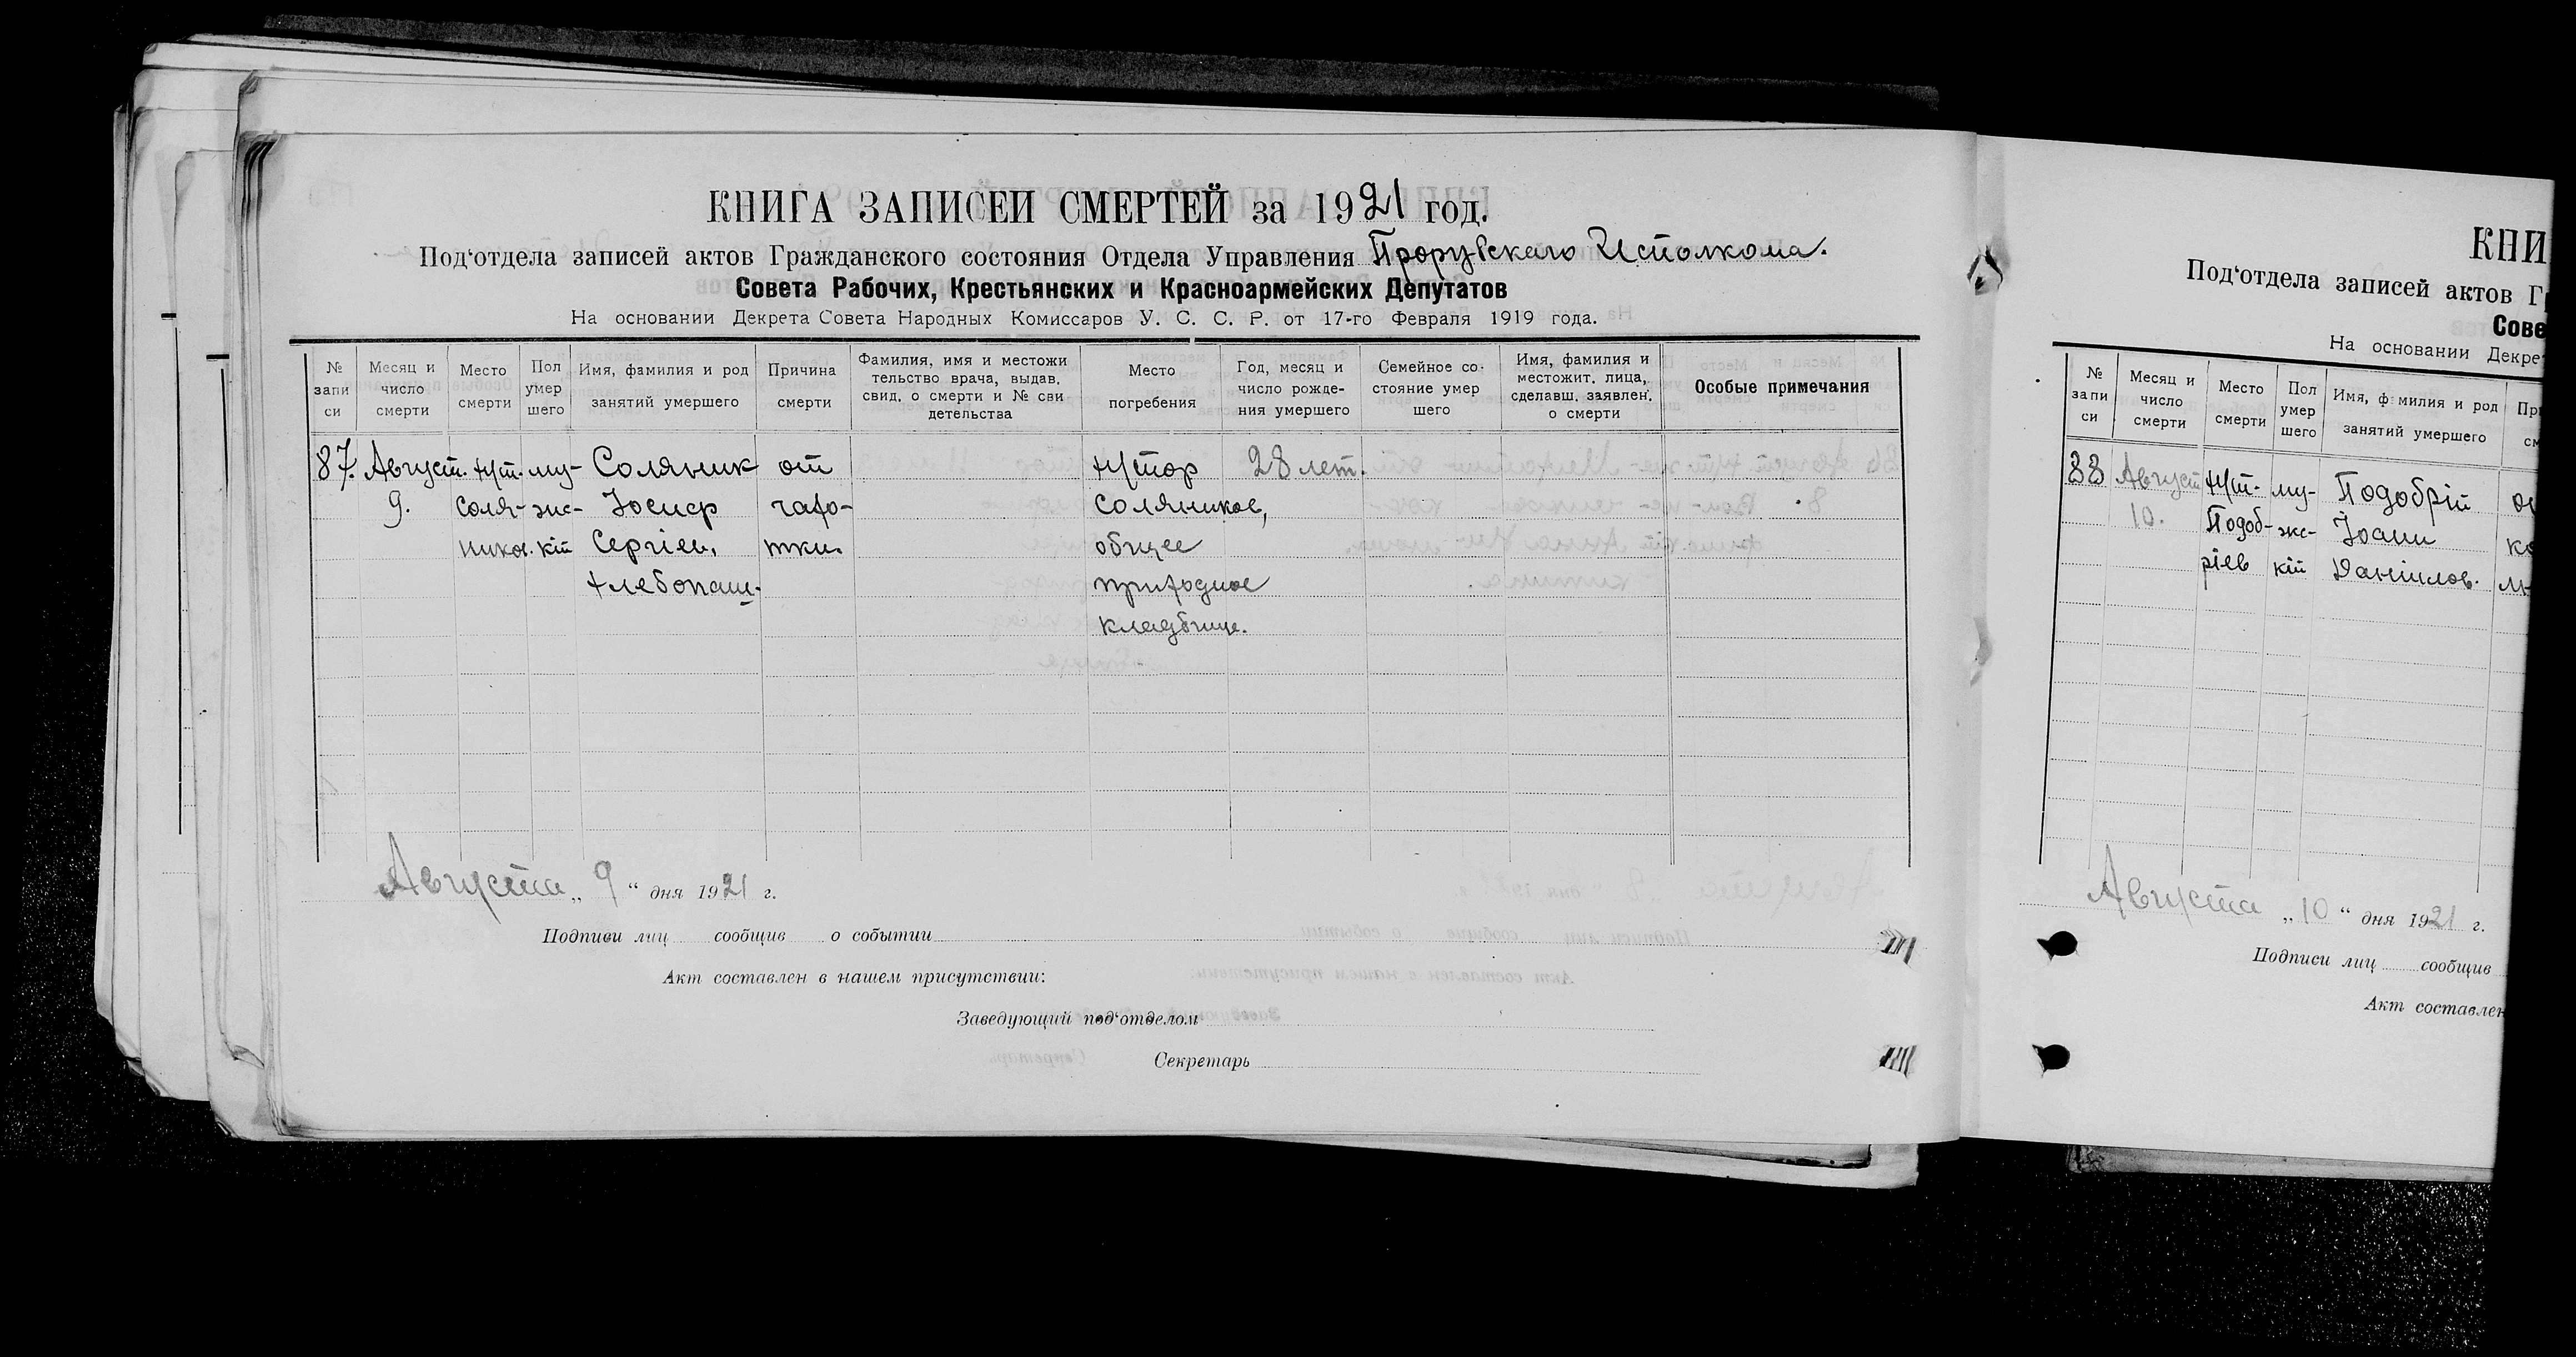 КНИГА ЗАПИСЕЙ СМЕРТЕЙ за 1921 год.
Под‘отдела записей актов Гражданского состояния Отдела Управления Прорубскаго Исполкома.
Совета Рабочих, Крестьянских и Красноармейских Депутатов
На основании Декрета Совета Народных Комиссаров У. С. С. Р. от 17-го Февраля 1919 года.
№ запи си
Месяц и число смерти
Место смерти
Пол умер шего
Имя, фамилия и род занятий умершего
Причина смерти
Фамилия, имя и местожи тельство врача, выдав. свид. о смерти и № сви детельства
Место погребения
Год, месяц и число рожде- ния умершего
Семейное со- стояние умер шего
Имя, фамилия и местожит. лица, сделавш. заявлен. о смерти
Особые примечания
87. Август. хут. му- Соляник от хутор 28 лет.
9. Соля- жс- Іосиф чахо- Соляников,
ников. кій Сергіев, тки. общее
хлебопаш. приходное
кладбище.
Августа „ 9 “ дня 1921 г.
Подписи лиц сообщив о событии
Акт составлен в нашем присутствии:
Заведующий под‘отделом
Секретарь
КНИ
Под‘отдела записей актов Г
Сове
На основании Декре
№ запи си
Месяц и число смерти
Место смерти
Пол умер шего
Имя, фамилия и род занятий умершего
При см
88 Август хут. му- Подобрій
10. Подоб- жс- Іоанн
ріев кій Даніилов.
Августа „ 10 “ дня 1921 г.
Подписи лиц сообщив
Акт составлен